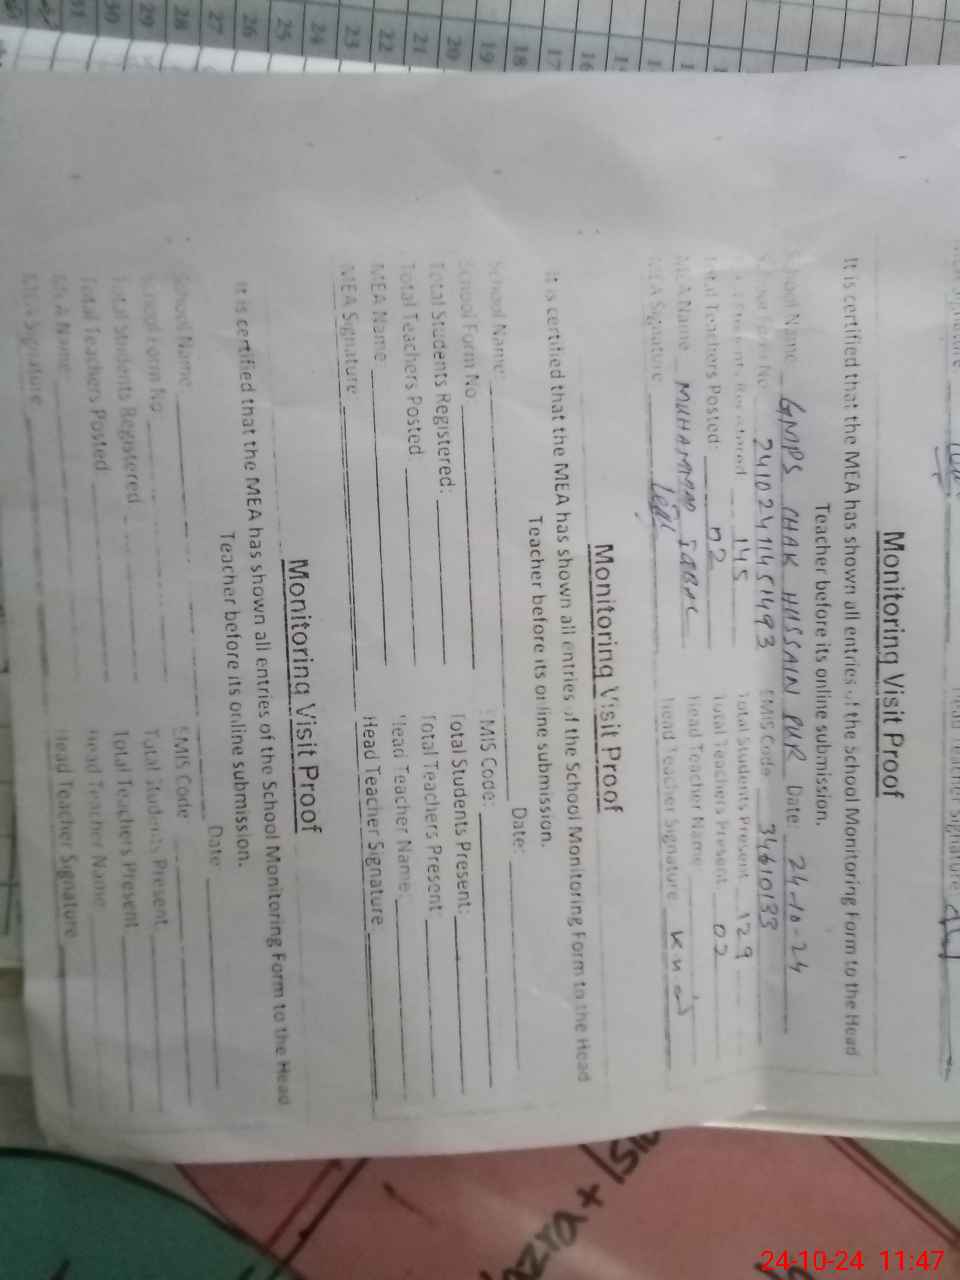 Monitoring Visit Proof
It is certified that the MEA has shown all entries of the School Monitoring Form to the Head
Teacher before its online submission.
School Name GMPS CHAK HUSSAIN PUR Date: 24-10-24
EMIS Code 34610133
145 Total Students Present 129
Total Teachers Posted: 02 Total Teachers Present 02
MEA Name MUHAMMAD Head Teacher Name:
MEA Signature Head Teacher Signature
Monitoring Visit Proof
It is certified that the MEA has shown all entries of the School Monitoring Form to the Head
Teacher before its online submission.
School Name: Date:
School Form No EMIS Code:
Total Students Registered: Total Students Present:
Total Teachers Posted Total Teachers Present
MEA Name Head Teacher Name
MEA Signature Head Teacher Signature
Monitoring Visit Proof
It is certified that the MEA has shown all entries of the School Monitoring Form to the Head
Teacher before its online submission.
School Name Date:
School Form No EMIS Code
Total Students Registered Total Students Present
Total Teachers Posted Total Teachers Present
MEA Name Head Teacher Name
MEA Signature Head Teacher Signature
16 17 18 19 20 21 22 23 24 25 26 27 28 29 30 31
24-10-24 11:47